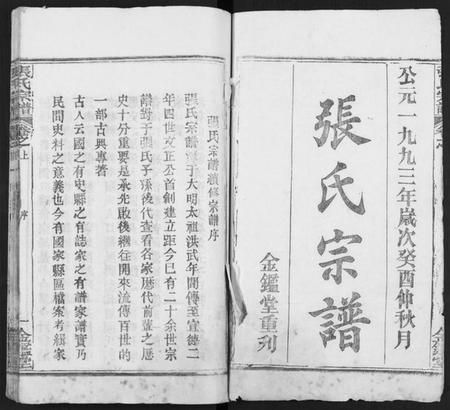 公元一九九三年歲次癸酉仲秋月
張氏宗譜
金鑑堂重刋
張氏宗譜續修宗譜序
張氏宗譜於大明太祖洪武年間傳至宣德二
年四世文正公首創建立距今已有二十余世宗
譜對于張氏子孫後代查看各家歷代前輩之歷
史十分重要是承先啟後繼往開來流傳百世的
一部古典專著
古人云國之有史縣之有誌家之有譜家譜實乃
民間史料之意義也今有國家縣區檔案考緝家
張氏宗譜
卷之上
序
一
金鑑堂